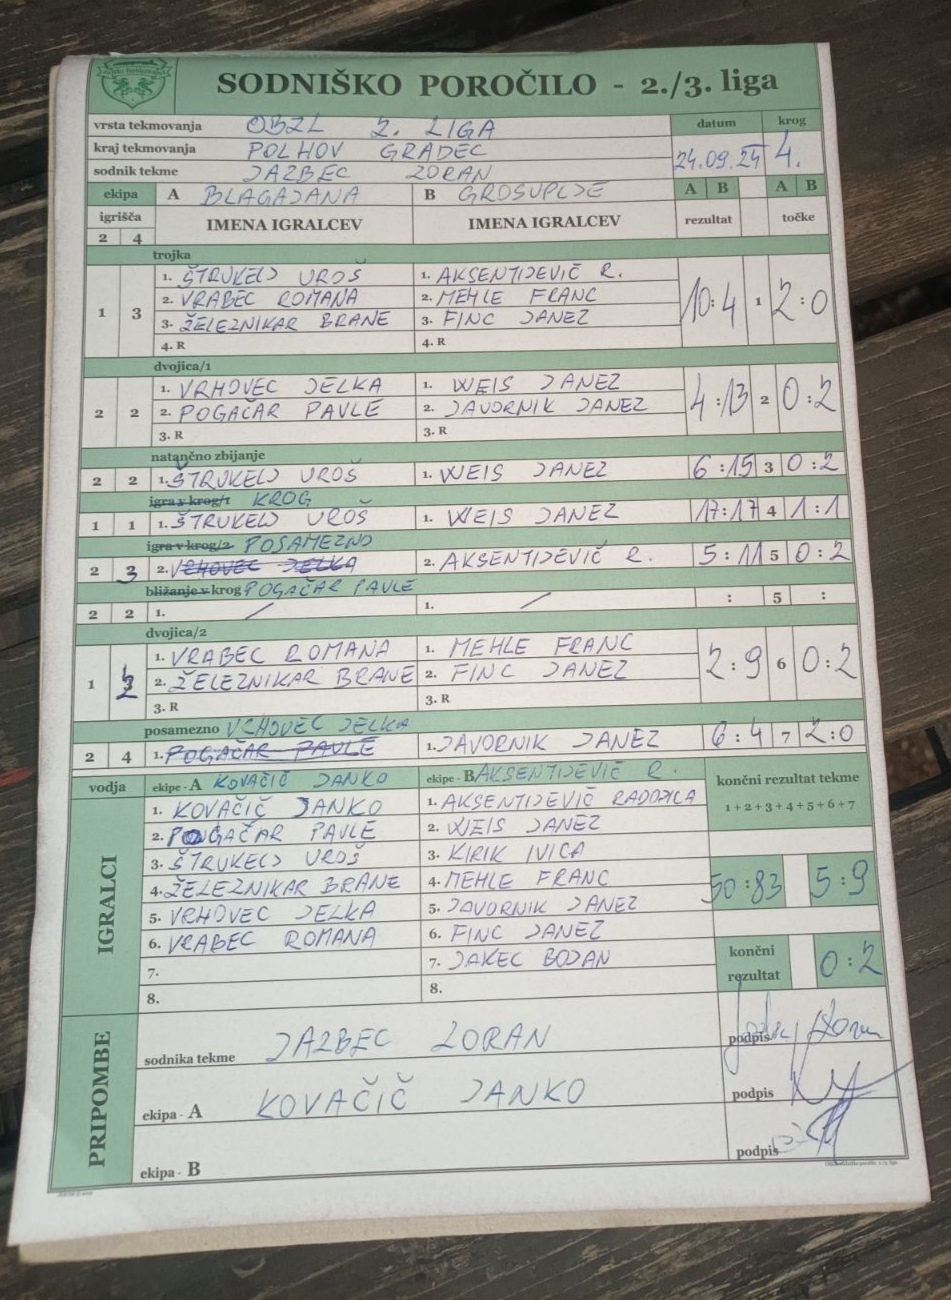 SODNIŠKO POROČILO - 2./3. liga
vrsta tekmovanja OBZL 2. LIGA datum krog
kraj tekmovanja POLHOV GRADEC 24.09.24 4.
sodnik tekme JAZBEC ZORAN
ekipa A BLAGAJANA B GROSUPLJE A B A B
igrišča IMENA IGRALCEV IMENA IGRALCEV rezultat točke
2 4
trojka
1. ŠTRUKELJ UROŠ 1. AKSENTIJEVIČ R.
1 3 2. VRABEC ROMANA 2. MEHLE FRANC 10:4 1 2:0
3. ŽELEZNIKAR BRANE 3. FINC JANEZ
4. R 4. R
dvojica/1
1. VRHOVEC JELKA 1. WEIS JANEZ
2 2 2. POGAČAR PAVLE 2. JAVORNIK JANEZ 4:13 2 0:2
3. R 3. R
natančno zbijanje
2 2 1. ŠTRUKELJ UROŠ 1. WEIS JANEZ 6:15 3 0:2
igra v krog/1 KROG
1 1 1. ŠTRUKELJ UROŠ 1. WEIS JANEZ 17:17 4 1:1
igra v krog/2 POSAMEZNO
2 3 2. VRHOVEC JELKA 2. AKSENTIJEVIČ R. 5:11 5 0:2
bližanje v krog POGAČAR PAVLE
2 2 1. / 1. / : 5 :
dvojica/2
1. VRABEC ROMANA 1. MEHLE FRANC
1 2. ŽELEZNIKAR BRANE 2. FINC JANEZ 2:9 6 0:2
3. R 3. R
posamezno VRHOVEC JELKA
2 4 1. POGAČAR PAVLE 1. JAVORNIK JANEZ 6:4 7 2:0
vodja ekipe - A KOVAČIČ JANKO ekipe - B AKSENTIJEVIČ R. končni rezultat tekme
1. KOVAČIČ JANKO 1. AKSENTIJEVIČ RADOJICA 1+2+3+4+5+6+7
2. POGAČAR PAVLE 2. WEIS JANEZ
3. ŠTRUKELJ UROŠ 3. KIRIK IVICA
IGRALCI 4. ŽELEZNIKAR BRANE 4. MEHLE FRANC 50:83 5:9
5. VRHOVEC JELKA 5. JAVORNIK JANEZ
6. VRABEC ROMANA 6. FINC JANEZ
7. 7. JAKEC BOJAN končni rezultat 0:2
8. 8.
PRIPOMBE
sodnika tekme JAZBEC ZORAN podpis
ekipa - A KOVAČIČ JANKO podpis
ekipa - B podpis